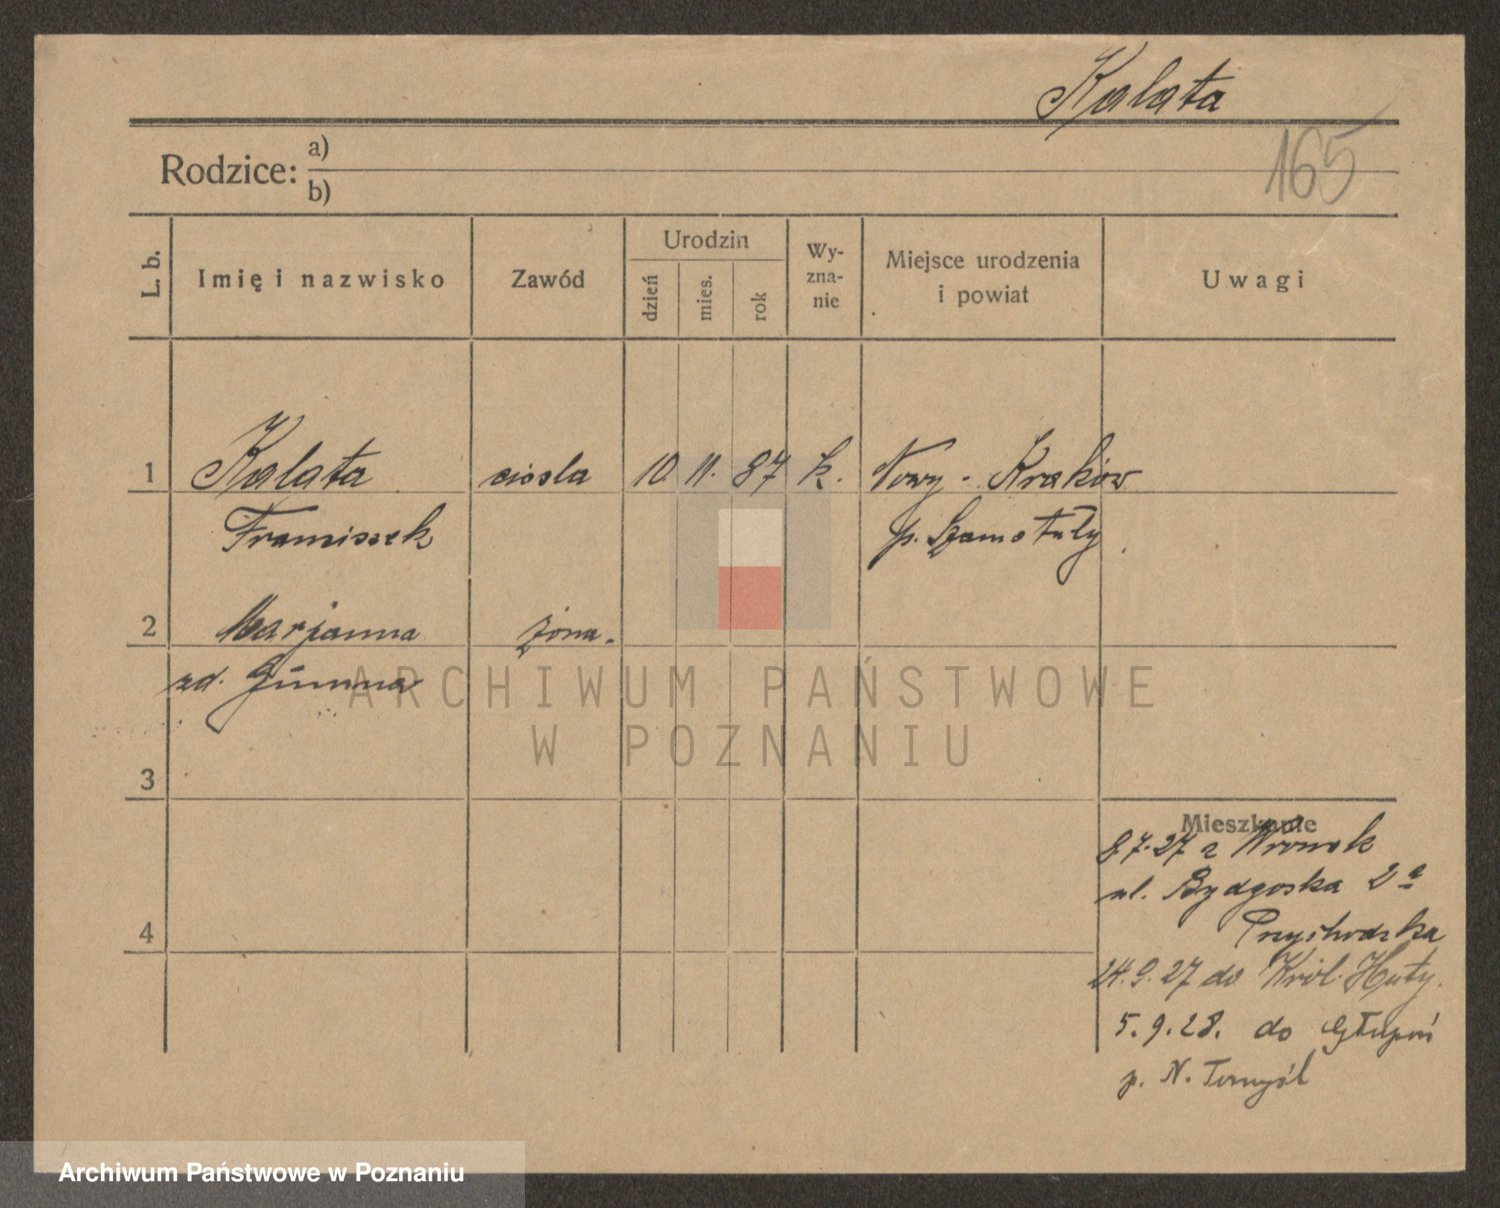 Kalata
165
Rodzice: a)
b)
L. b. Imię i nazwisko Zawód Urodzin dzień mies. rok Wy-zna-nie Miejsce urodzenia i powiat Uwagi
1 Kalata ciesla 10 11. 87 k. Nowy-Kraków
Franciszek p. Szamotuły
2 Marjanna żona.
zd.
3
Mieszkanie
8.7.27 z Wronek
ul. Bydgoska 2a
Przychodzka
4
24.9.27 do Król. Huty.
5.9.28. do Głupoń
p. N. Tomyśl
ARCHIWUM PAŃSTWOWE
W POZNANIU
Archiwum Państwowe w Poznaniu